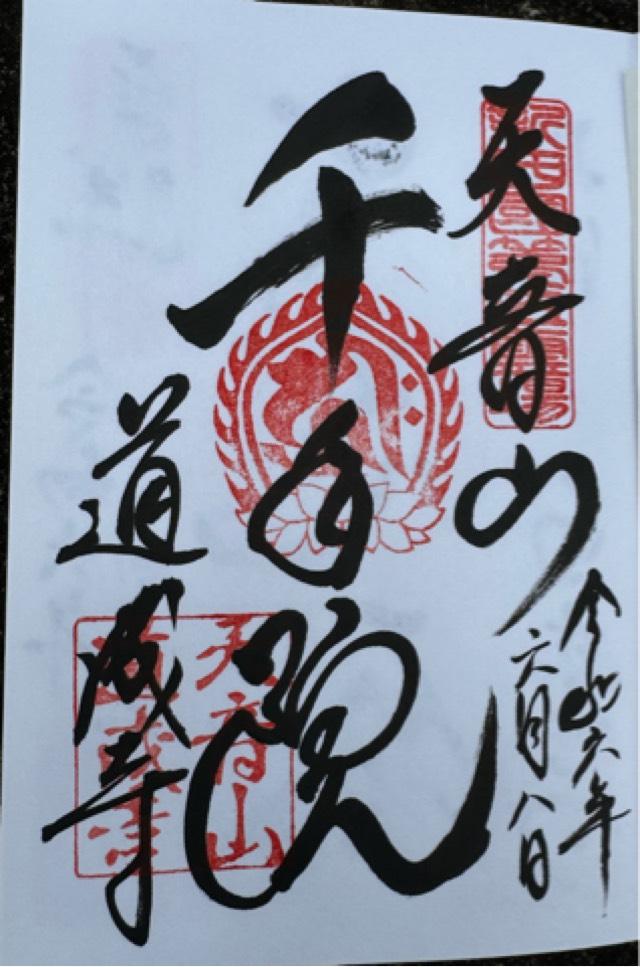 天音山
令和六年
六月八日
千手観
道成寺
天音山
道成寺